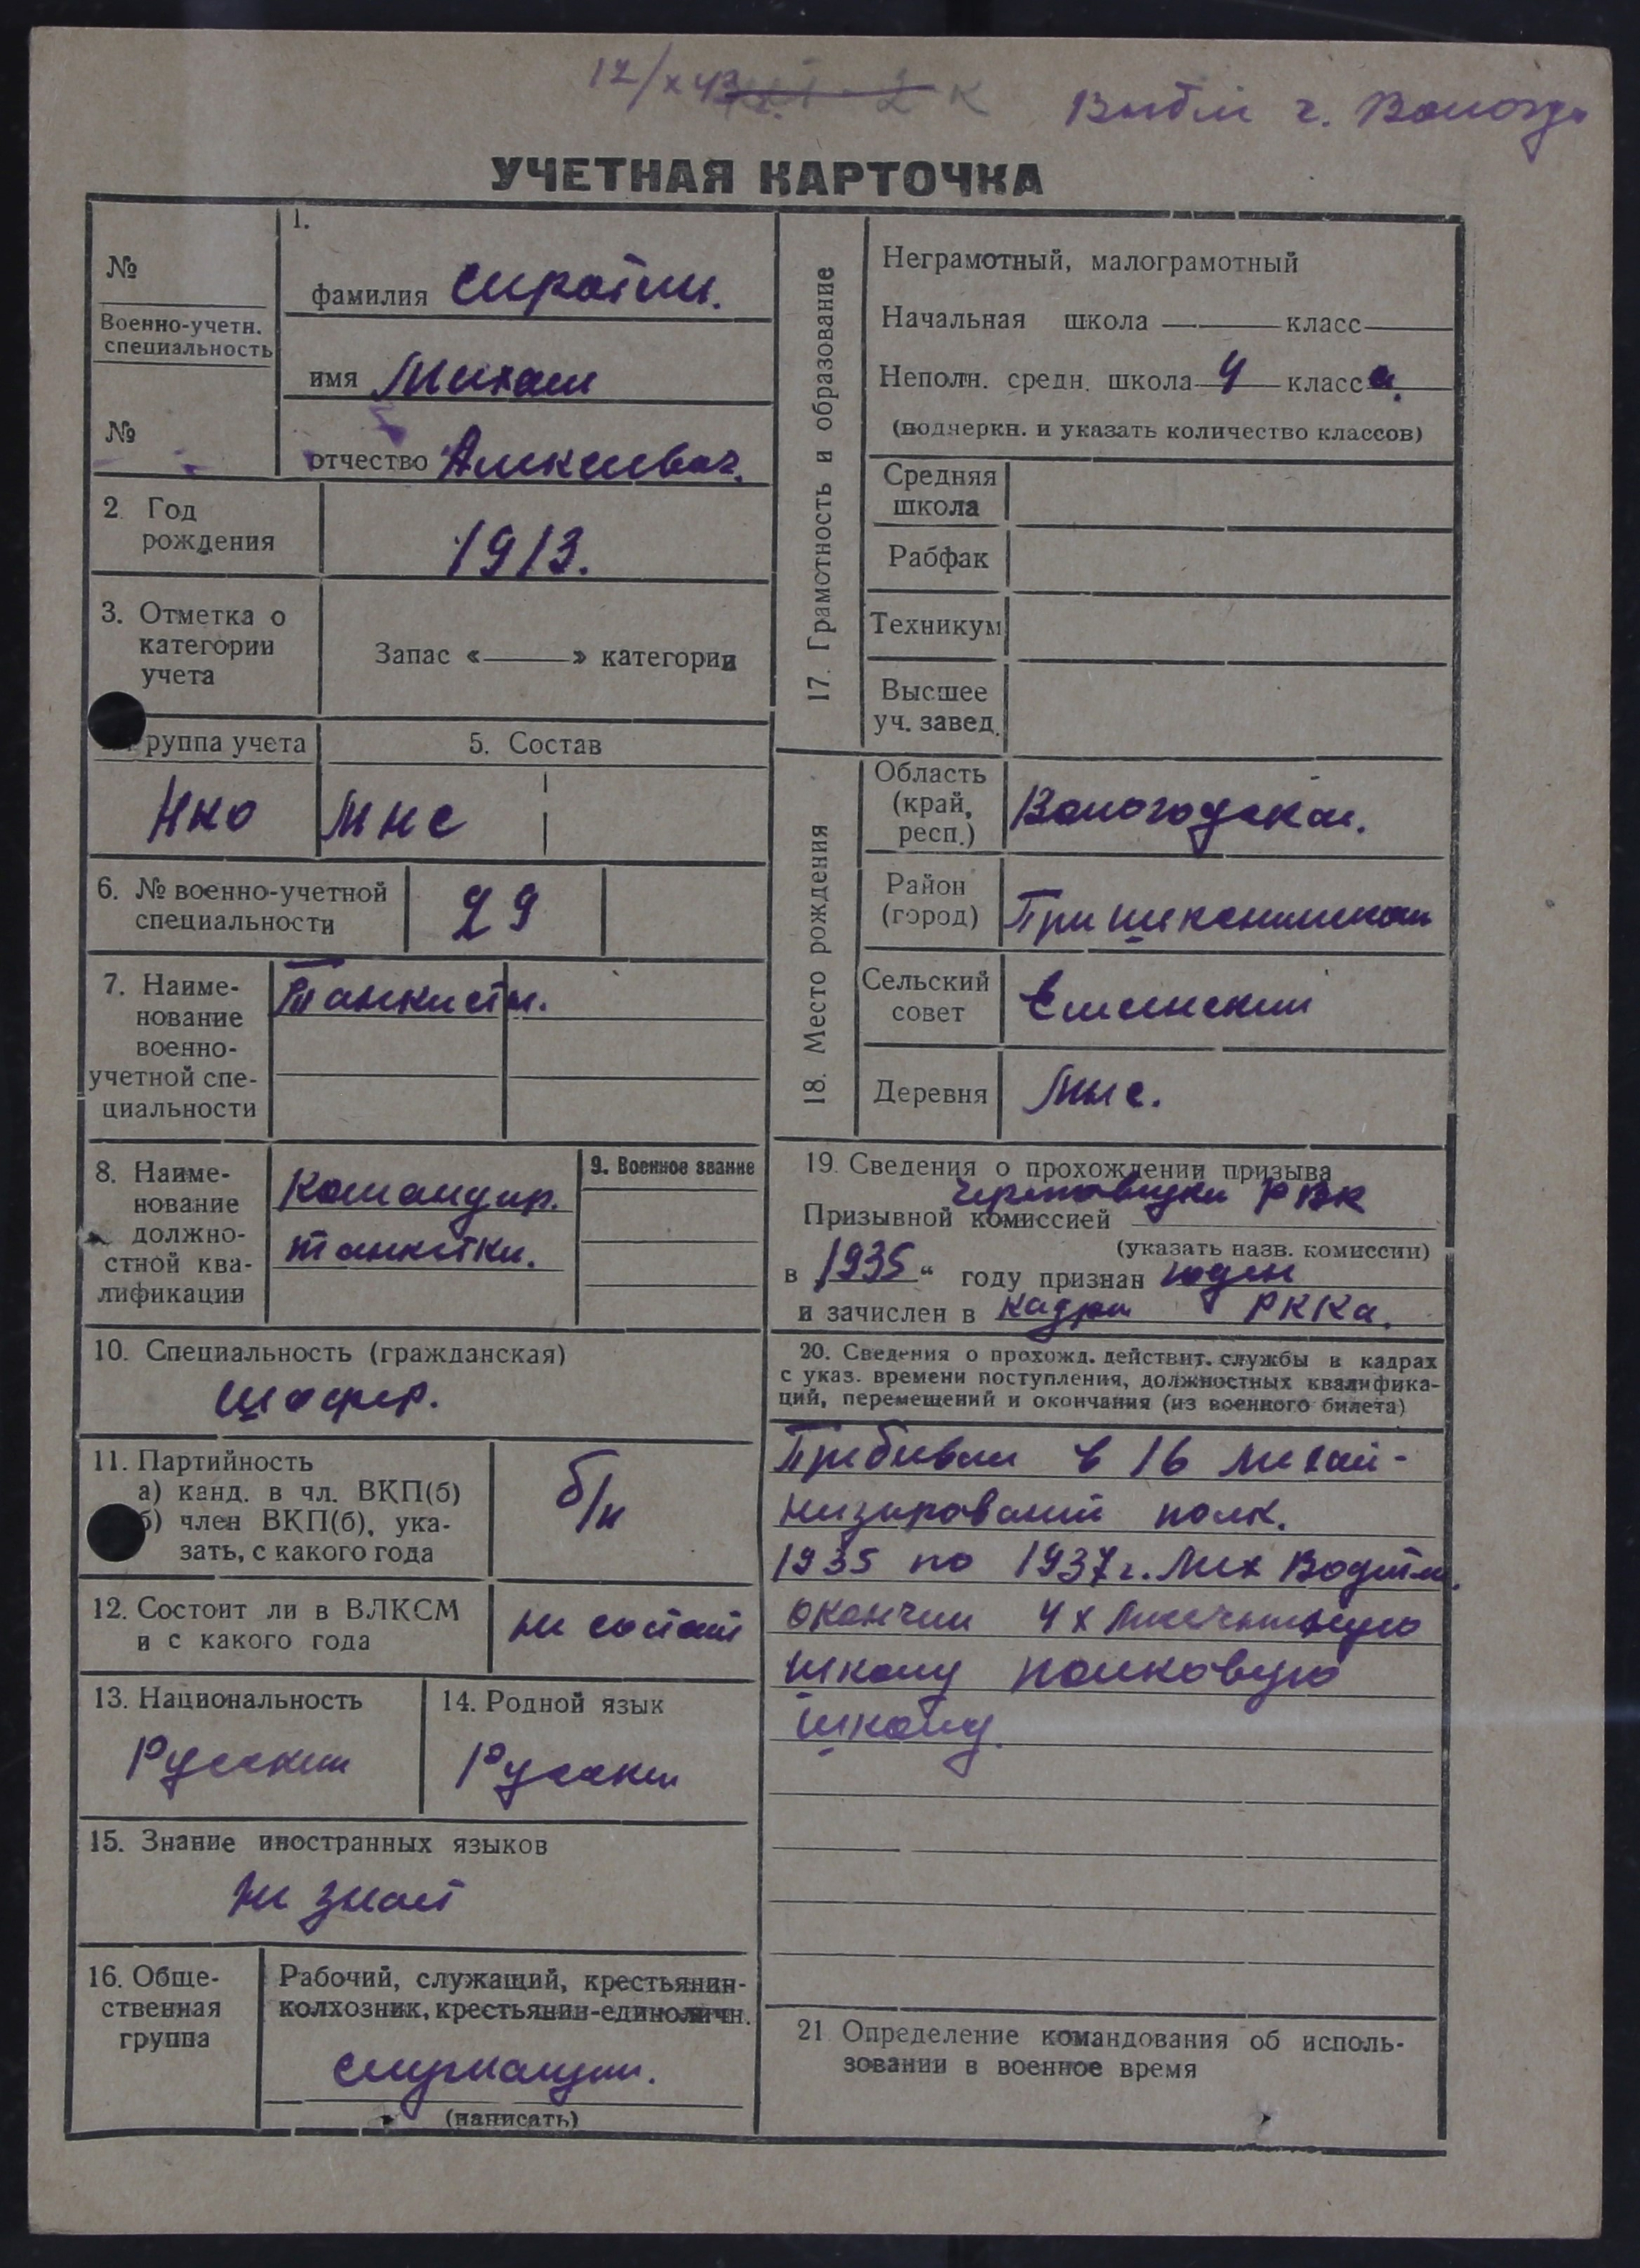 12/X 43 К Выбыл г. Вологда
УЧЕТНАЯ КАРТОЧКА
№
Военно-учетн.
специальность
№
1.
фамилия Сиротин.
имя Михаил
отчество Алексеевич.
2. Год
рождения
1913.
3. Отметка о
категории
учета
Запас «———» категории
руппа учета
НКО
5. Состав
МНС
6. № военно-учетной
специальности
29
7. Наиме-
нование
военно-
учетной спе-
циальности
Танкисты.
8. Наиме-
нование
должно-
стной ква-
лификации
Командир.
танкетки.
9. Военное звание
10. Специальность (гражданская)
Шофер.
11. Партийность
а) канд. в чл. ВКП(б)
б) член ВКП(б), ука-
зать, с какого года
б/п
12. Состоит ли в ВЛКСМ
и с какого года
не состоит
13. Национальность
Русский
14. Родной язык
Русский
15. Знание иностранных языков
не знает
16. Обще-
ственная
группа
Рабочий, служащий, крестьянин-
колхозник, крестьянин-единоличн.
служащий.
(написать)
17. Грамотность и образование
Неграмотный, малограмотный
Начальная школа ——— класс———
Неполн. средн. школа 4 класса.
(подчеркн. и указать количество классов)
Средняя
школа
Рабфак
Техникум
Высшее
уч. завед.
18. Место рождения
Область
(край,
респ.)
Вологодская.
Район
(город)
Сельский
совет
Деревня
Мыс.
19. Сведения о прохождении призыва
РВК
Призывной комиссией
(указать назв. комиссии)
в 1935 " году признан годен
и зачислен в кадры РККа.
20. Сведения о прохожд. действит. службы в кадрах
с указ. времени поступления, должностных квалифика-
ций, перемещений и окончания (из военного билета)
Пребывал в 16 механ-
низированый полк.
1935 по 1937 г. Мех Водител.
окончил 4х месечнную
школу полковую
школу.
21 Определение командования об исполь-
зовании в военное время